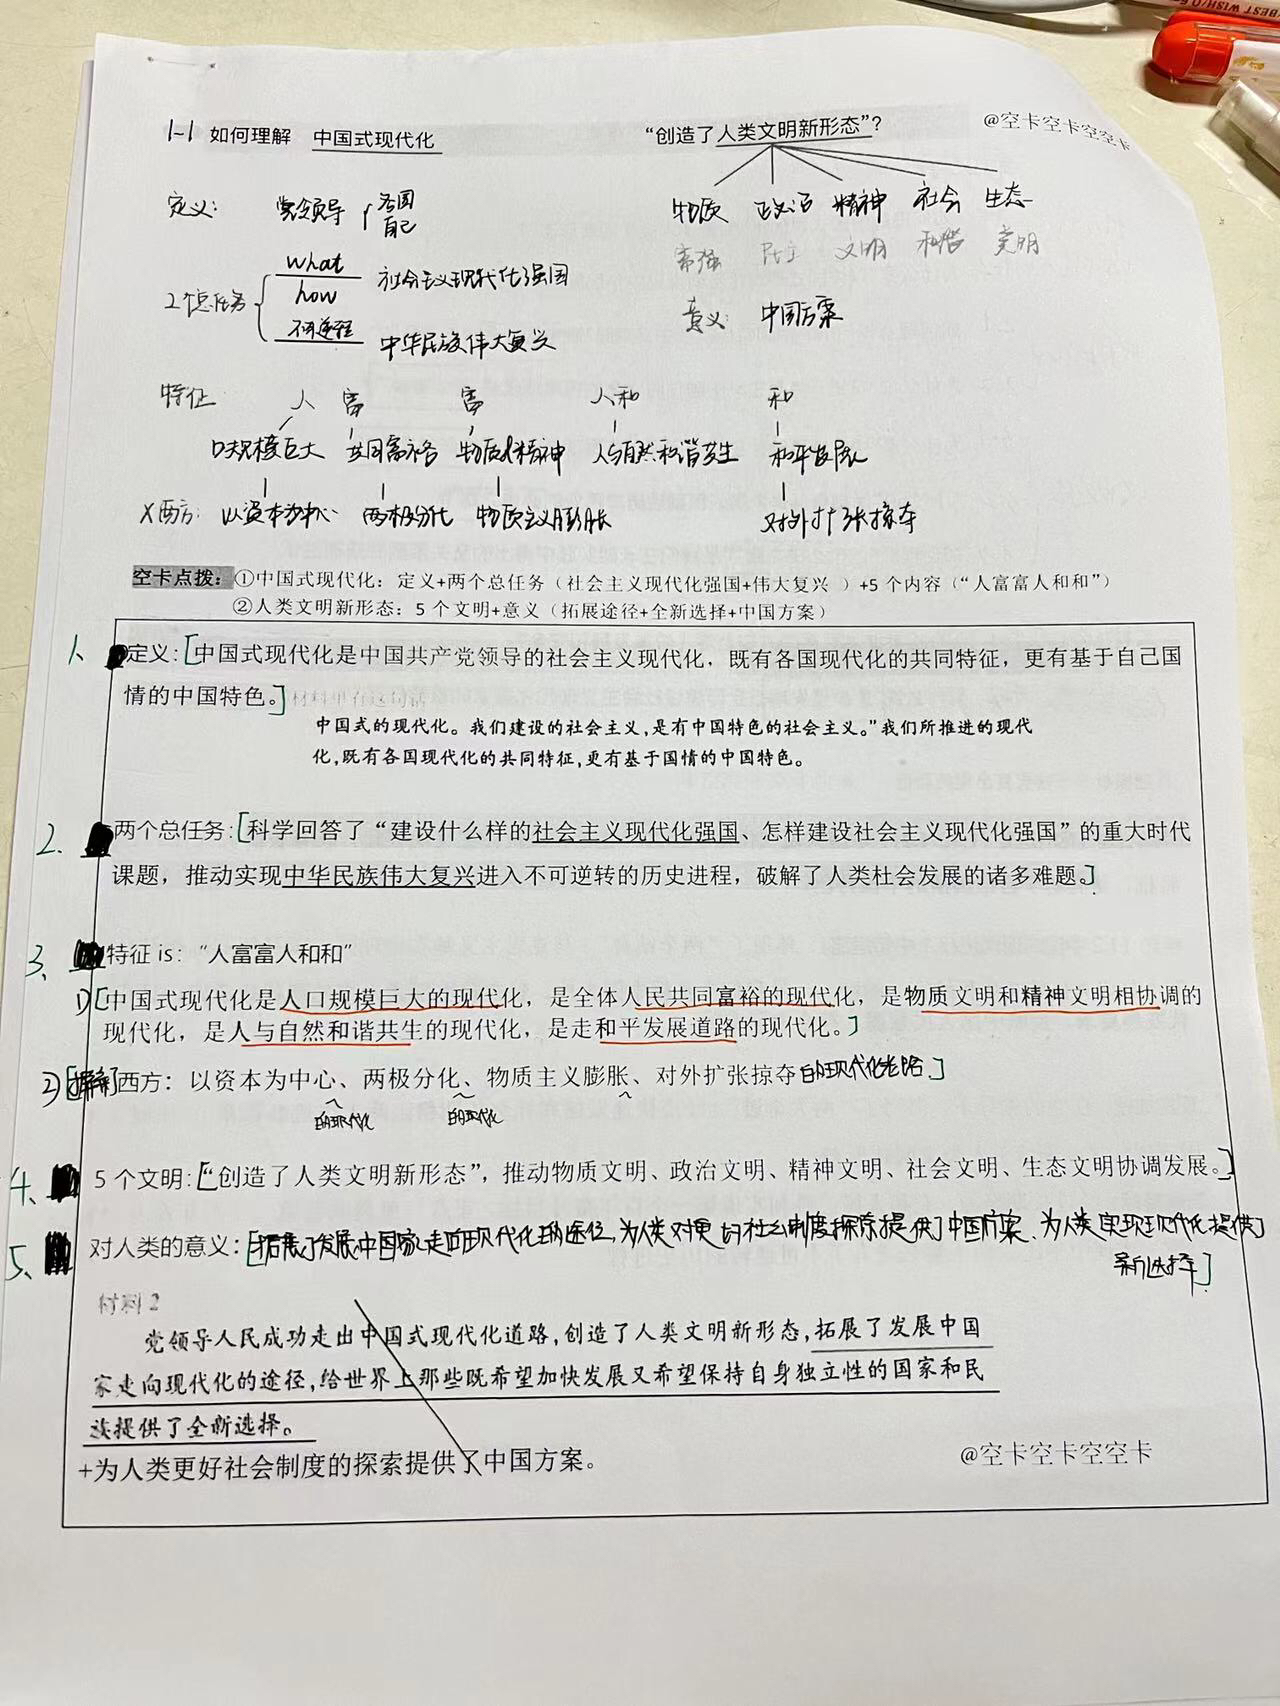 BEST WISH/0.
1-1 如何理解 中国式现代化 “创造了人类文明新形态”?
@空卡空卡空空卡
定义: 党领导 各国
自己
物质 政治 精神 社会 生态
富强 民主 文明 和谐
2个总任务 what 社会主义现代化强国
how
不可逆转 中华民族伟大复兴
意义: 中国方案
特征 人 富 富 人和 和
口规模巨大 共同富裕 物质&精神 人与自然和谐共生 和平发展
X西方: 以资本为中心 两极分化 物质主义膨胀 对外扩张掠夺
空卡点拨:①中国式现代化:定义+两个总任务(社会主义现代化强国+伟大复兴 )+5 个内容(“人富富人和和”)
②人类文明新形态:5 个文明+意义(拓展途径+全新选择+中国方案)
1、定义:[中国式现代化是中国共产党领导的社会主义现代化,既有各国现代化的共同特征,更有基于自己国
情的中国特色。]材料中有这句话
中国式的现代化。我们建设的社会主义,是有中国特色的社会主义。”我们所推进的现代
化,既有各国现代化的共同特征,更有基于国情的中国特色。
2、两个总任务:[科学回答了“建设什么样的社会主义现代化强国、怎样建设社会主义现代化强国”的重大时代
课题,推动实现中华民族伟大复兴进入不可逆转的历史进程,破解了人类社会发展的诸多难题。]
3、特征 is:“人富富人和和”
1)[中国式现代化是人口规模巨大的现代化,是全体人民共同富裕的现代化,是物质文明和精神文明相协调的
现代化,是人与自然和谐共生的现代化,是走和平发展道路的现代化。]
2)[摒弃了西方:以资本为中心、两极分化、物质主义膨胀、对外扩张掠夺的现代化老路]
的现代化 的现代化
4、5 个文明:[“创造了人类文明新形态”,推动物质文明、政治文明、精神文明、社会文明、生态文明协调发展。]
5、对人类的意义:[拓展了发展中国家走向现代化的途径,为人类对更好社会制度探索提供了中国方案、为人类实现现代化提供了
新选择]
材料 2
党领导人民成功走出中国式现代化道路,创造了人类文明新形态,拓展了发展中国
家走向现代化的途径,给世界上那些既希望加快发展又希望保持自身独立性的国家和民
族提供了全新选择。
+为人类更好社会制度的探索提供了中国方案。
@空卡空卡空空卡